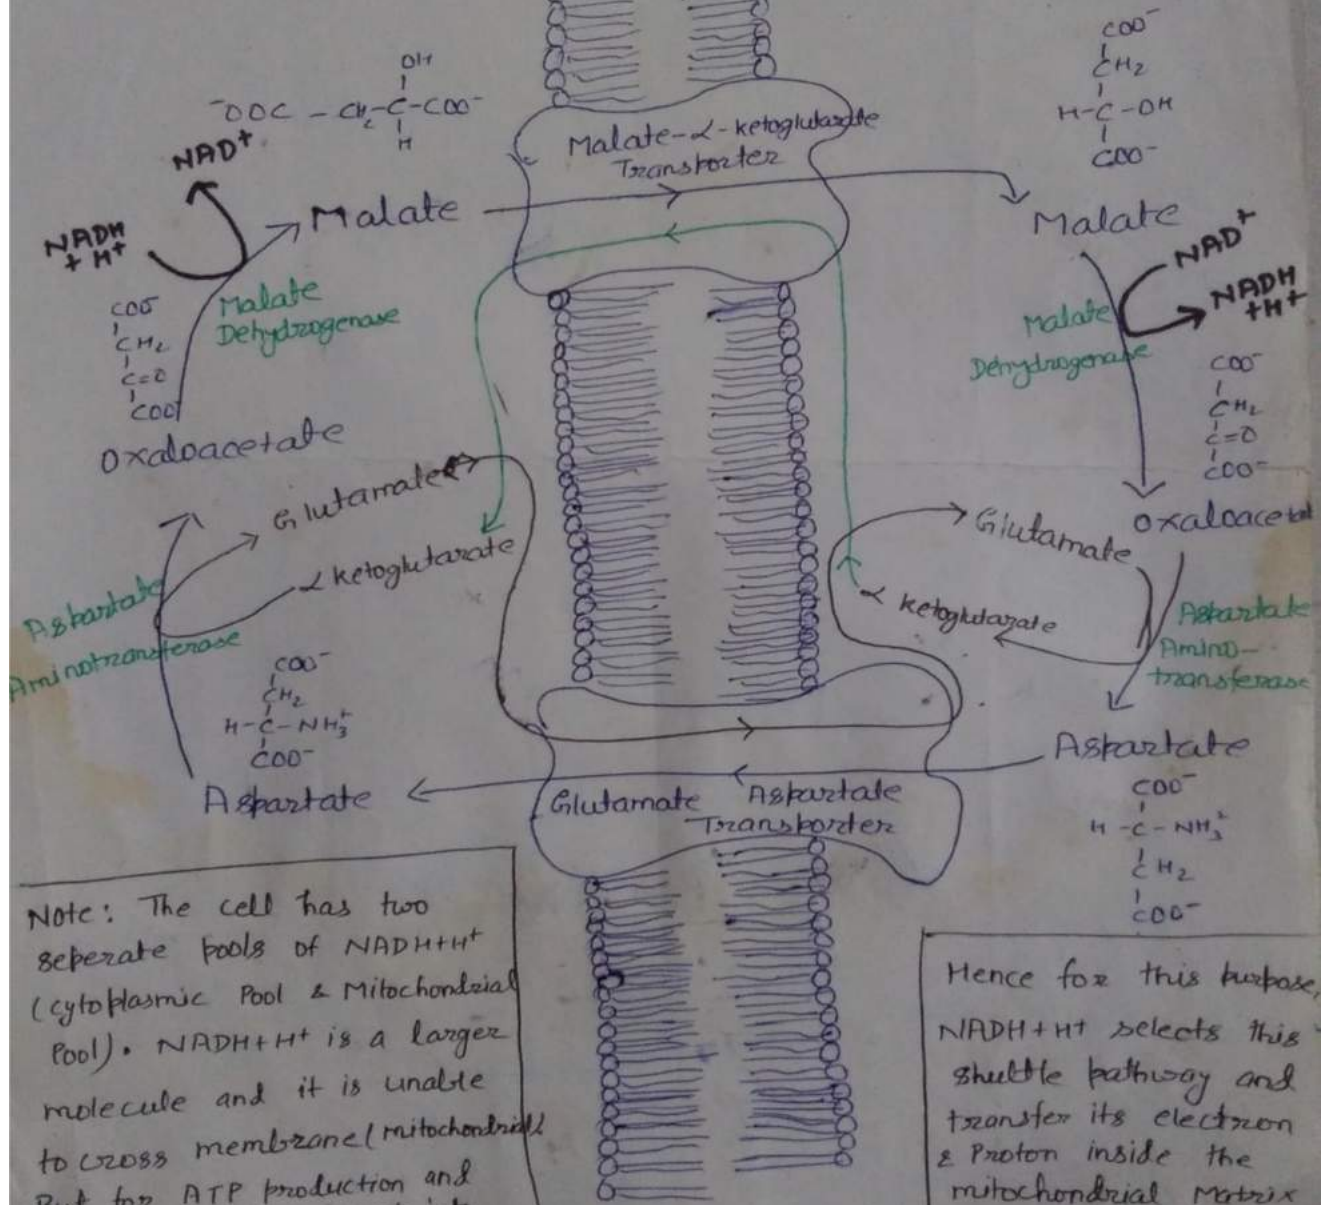 OH
⁻OOC – CH₂–C–COO⁻
H
NAD⁺
NADH
+ H⁺
Malate
Malate
Dehydrogenase
COO⁻
CH₂
C=O
COO⁻
Oxaloacetate
Glutamate
α ketoglutarate
Aspartate
Aminotransferase
COO⁻
CH₂
H–C–NH₃⁺
COO⁻
Aspartate
Malate-α-ketoglutarate
Transporter
Glutamate Aspartate
Transporter
COO⁻
CH₂
H–C–OH
COO⁻
Malate
NAD⁺
NADH
+H⁺
Malate
Dehydrogenase
COO⁻
CH₂
C=O
COO⁻
Oxaloacetat
Glutamate
α ketoglutarate
Aspartate
Amino-
transferase
Aspartate
COO⁻
H–C–NH₃⁺
CH₂
COO⁻
Note: The cell has two
seperate pools of NADH+H⁺
(cytoplasmic Pool & Mitochondrial
Pool). NADH+H⁺ is a larger
molecule and it is unable
to cross membrane (mitochondrial)
But for ATP production and
Hence for this purpose,
NADH+H⁺ selects this
shuttle pathway and
transfer its electron
& Proton inside the
mitochondrial Matrix